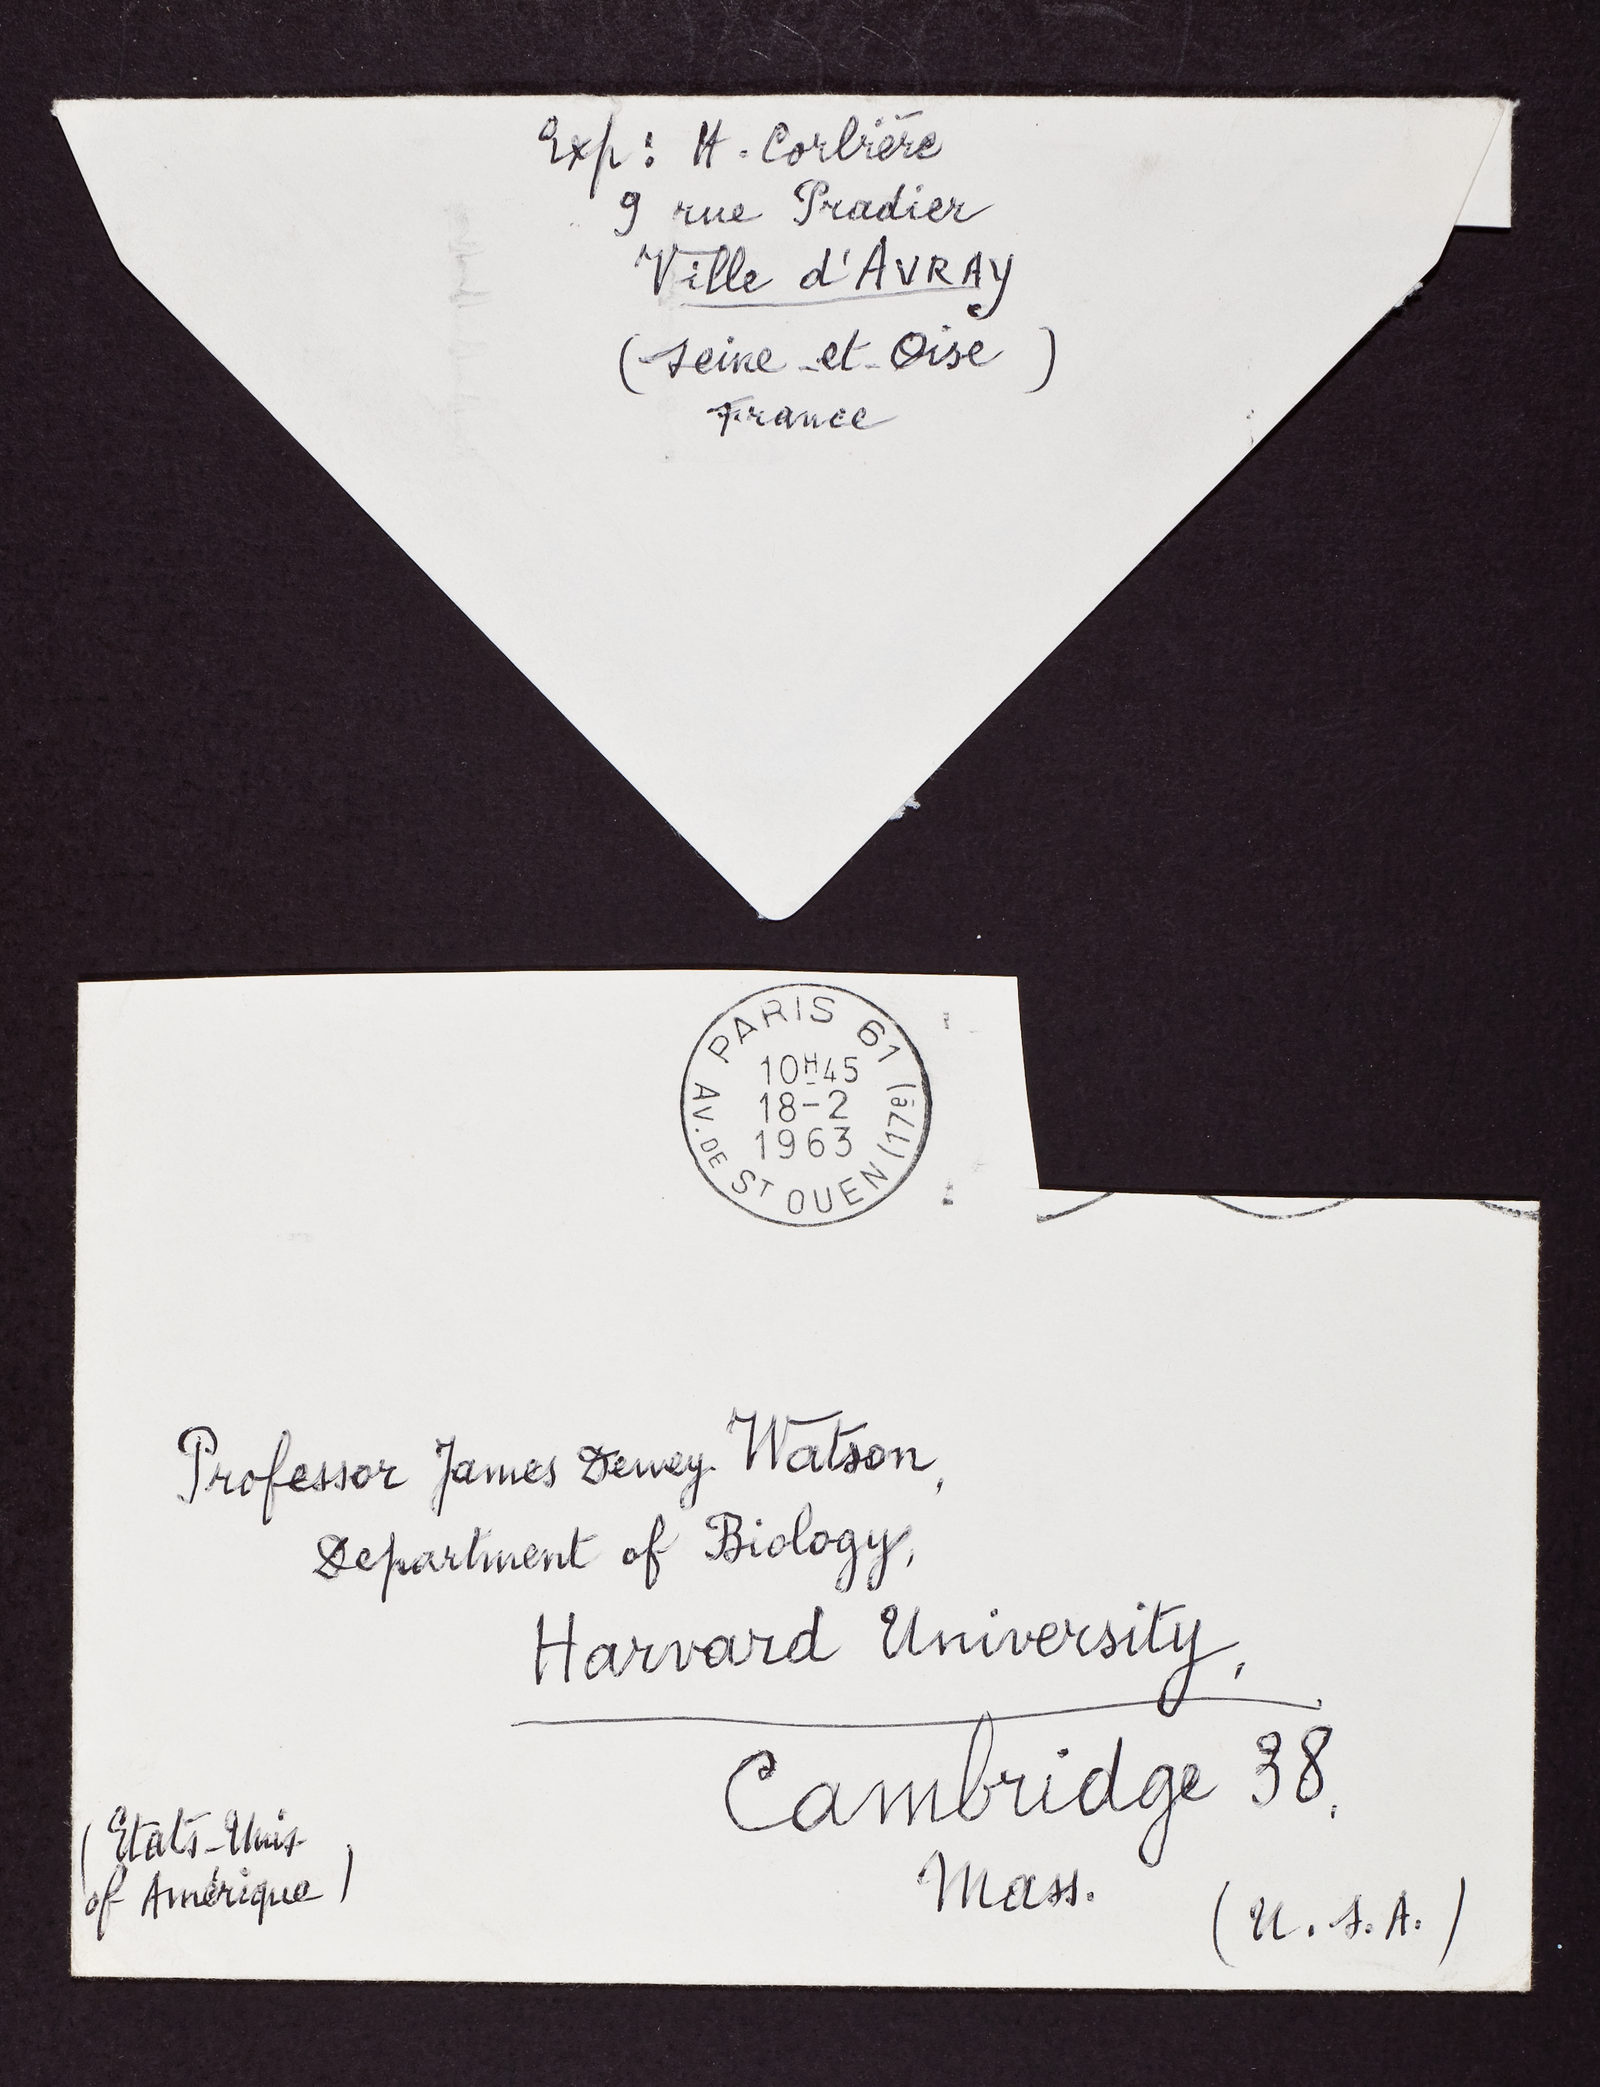 Exp: H. Corbière
9 rue Pradier
Ville d'AVRAY
(Seine-et-Oise)
France
PARIS 61
10H45
18-2
1963
AV. DE ST OUEN (17e)
Professor James Dewey Watson,
Department of Biology,
Harvard University,
Cambridge 38,
Mass.
(U.S.A.)
(Etats-Unis
of Amérique)